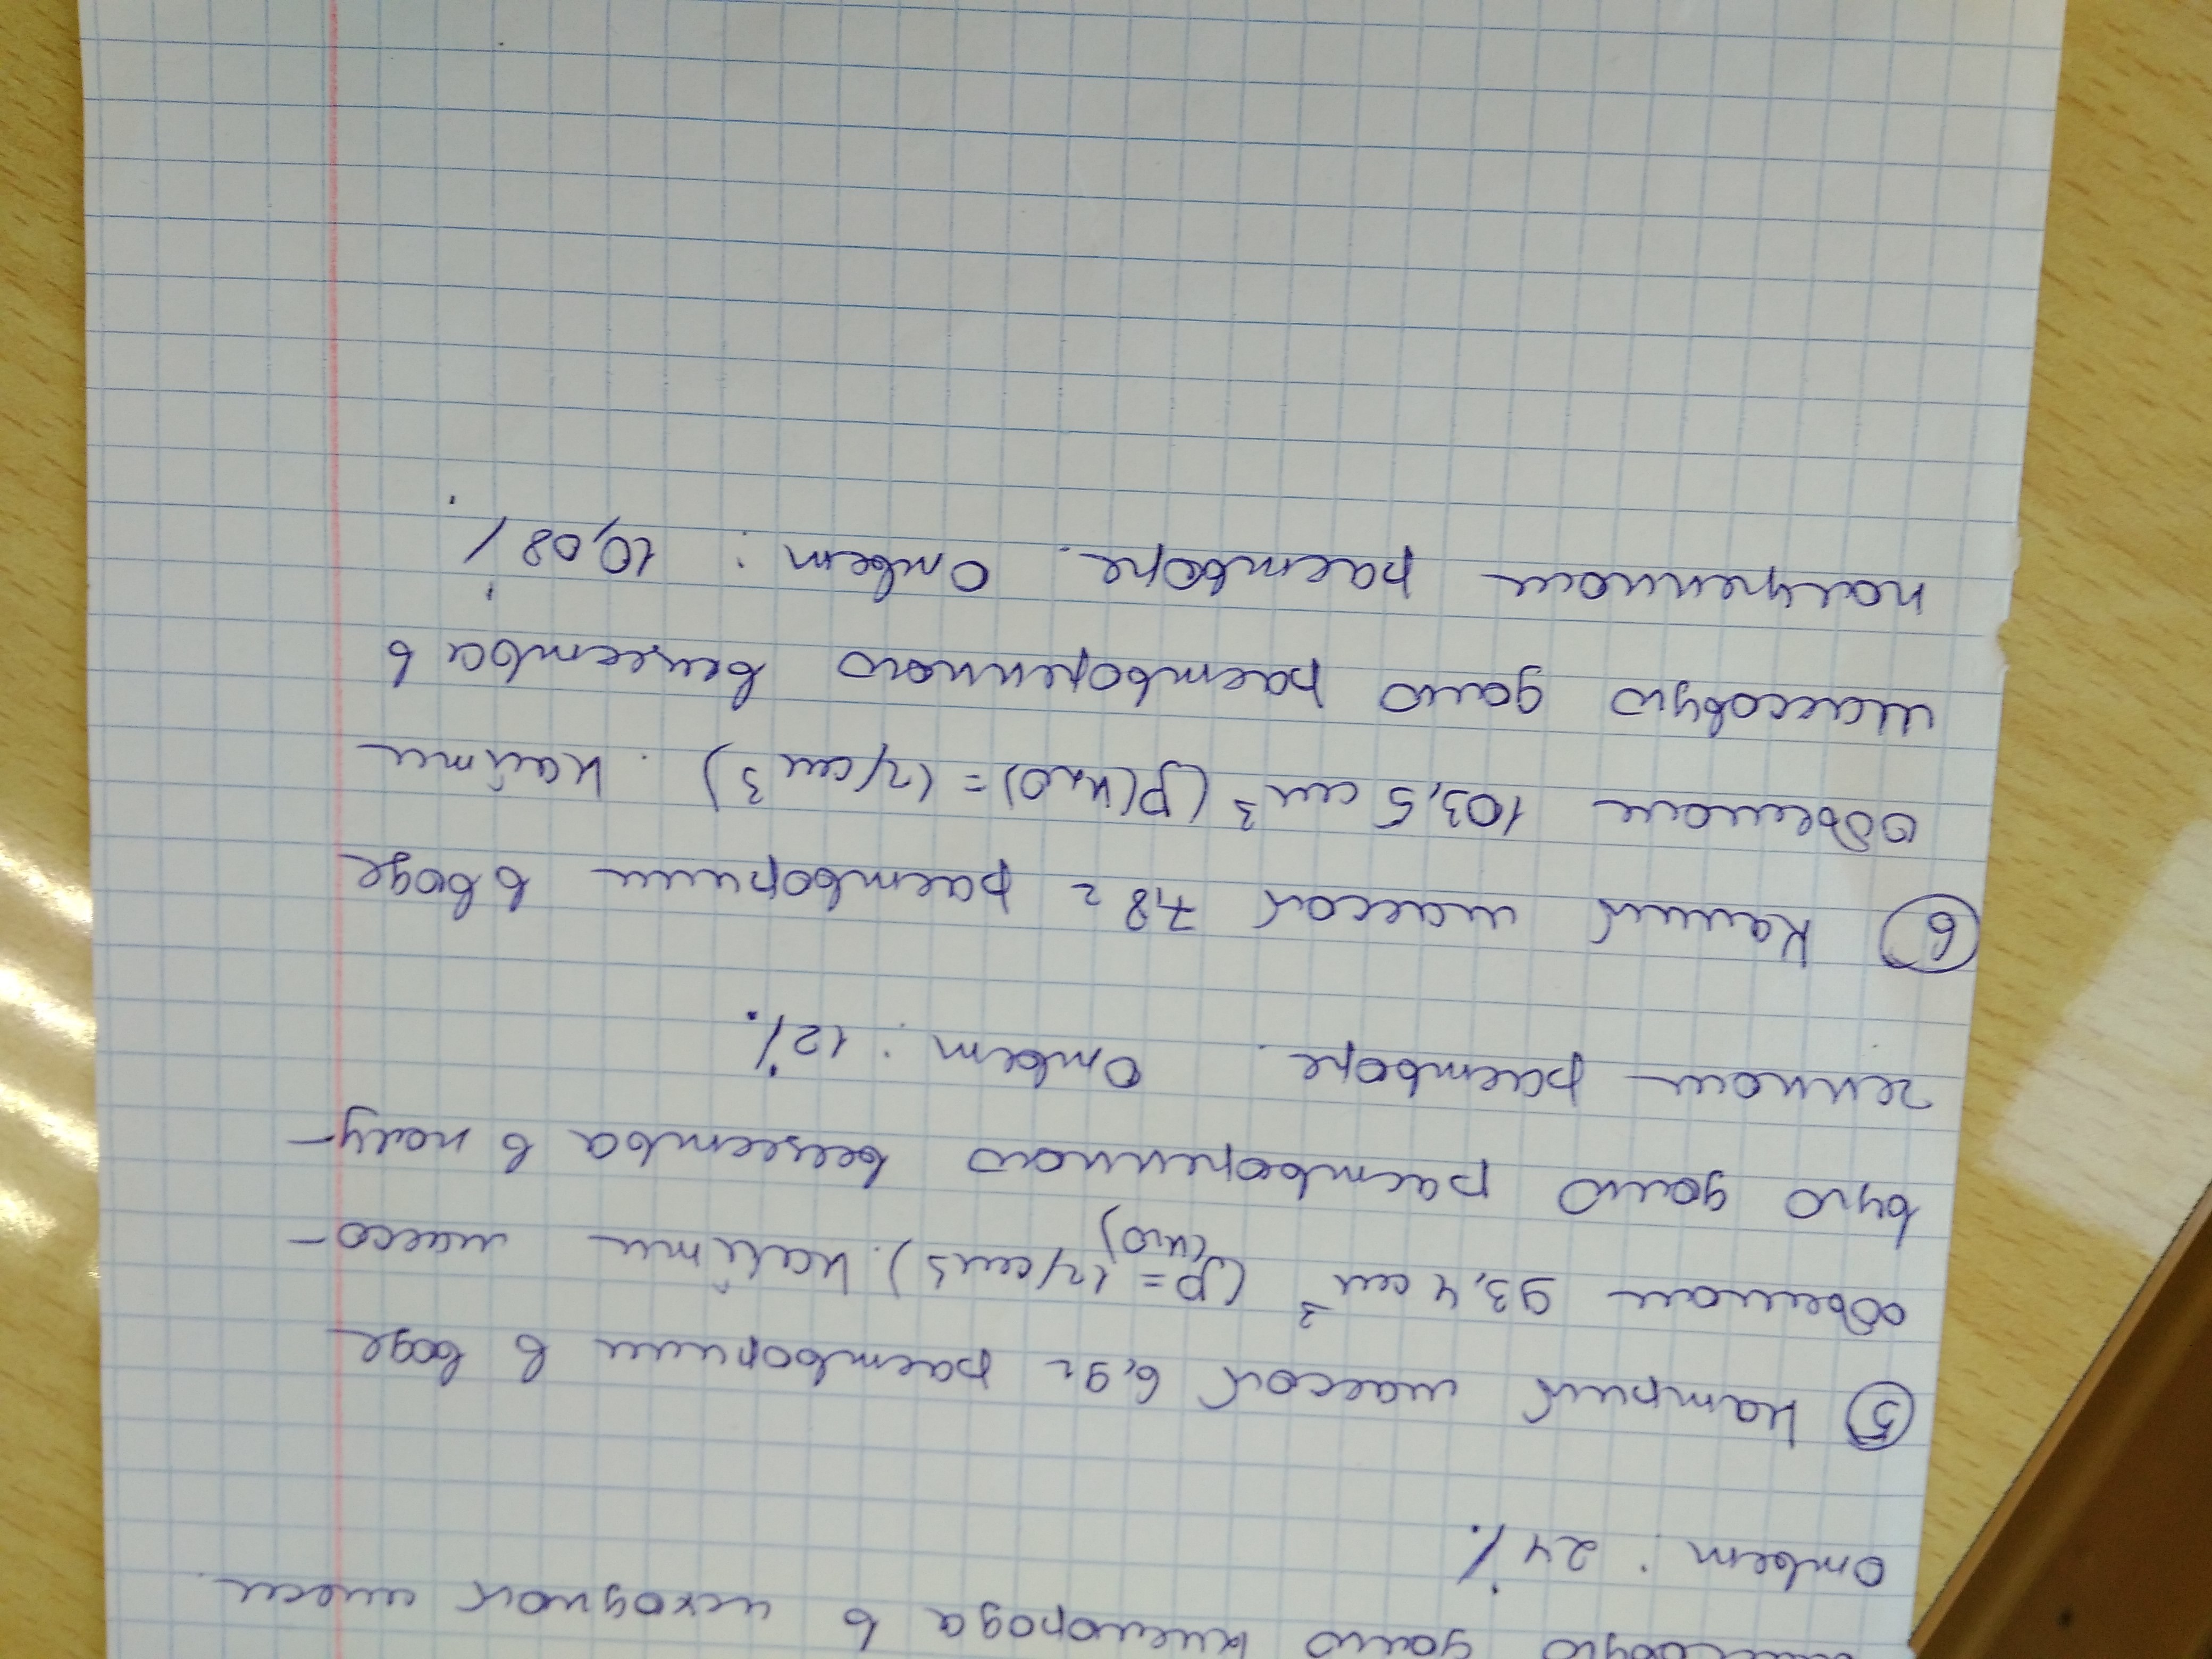 массовую долю кислорода в исходной смеси.
Ответ: 24%.
⑤ Натрий массой 6,9г растворили в воде
объемом 93,4 см³ (ρ(H₂O) = 1г/см³). Найти массо-
вую долю растворенного вещества в полу-
ченном растворе. Ответ: 12%.
⑥ Калий массой 7,8г растворили в воде
объемом 103,5 см³ (ρ(H₂O) = 1г/см³). Найти
массовую долю растворенного вещества в
полученном растворе. Ответ: 10,08%.